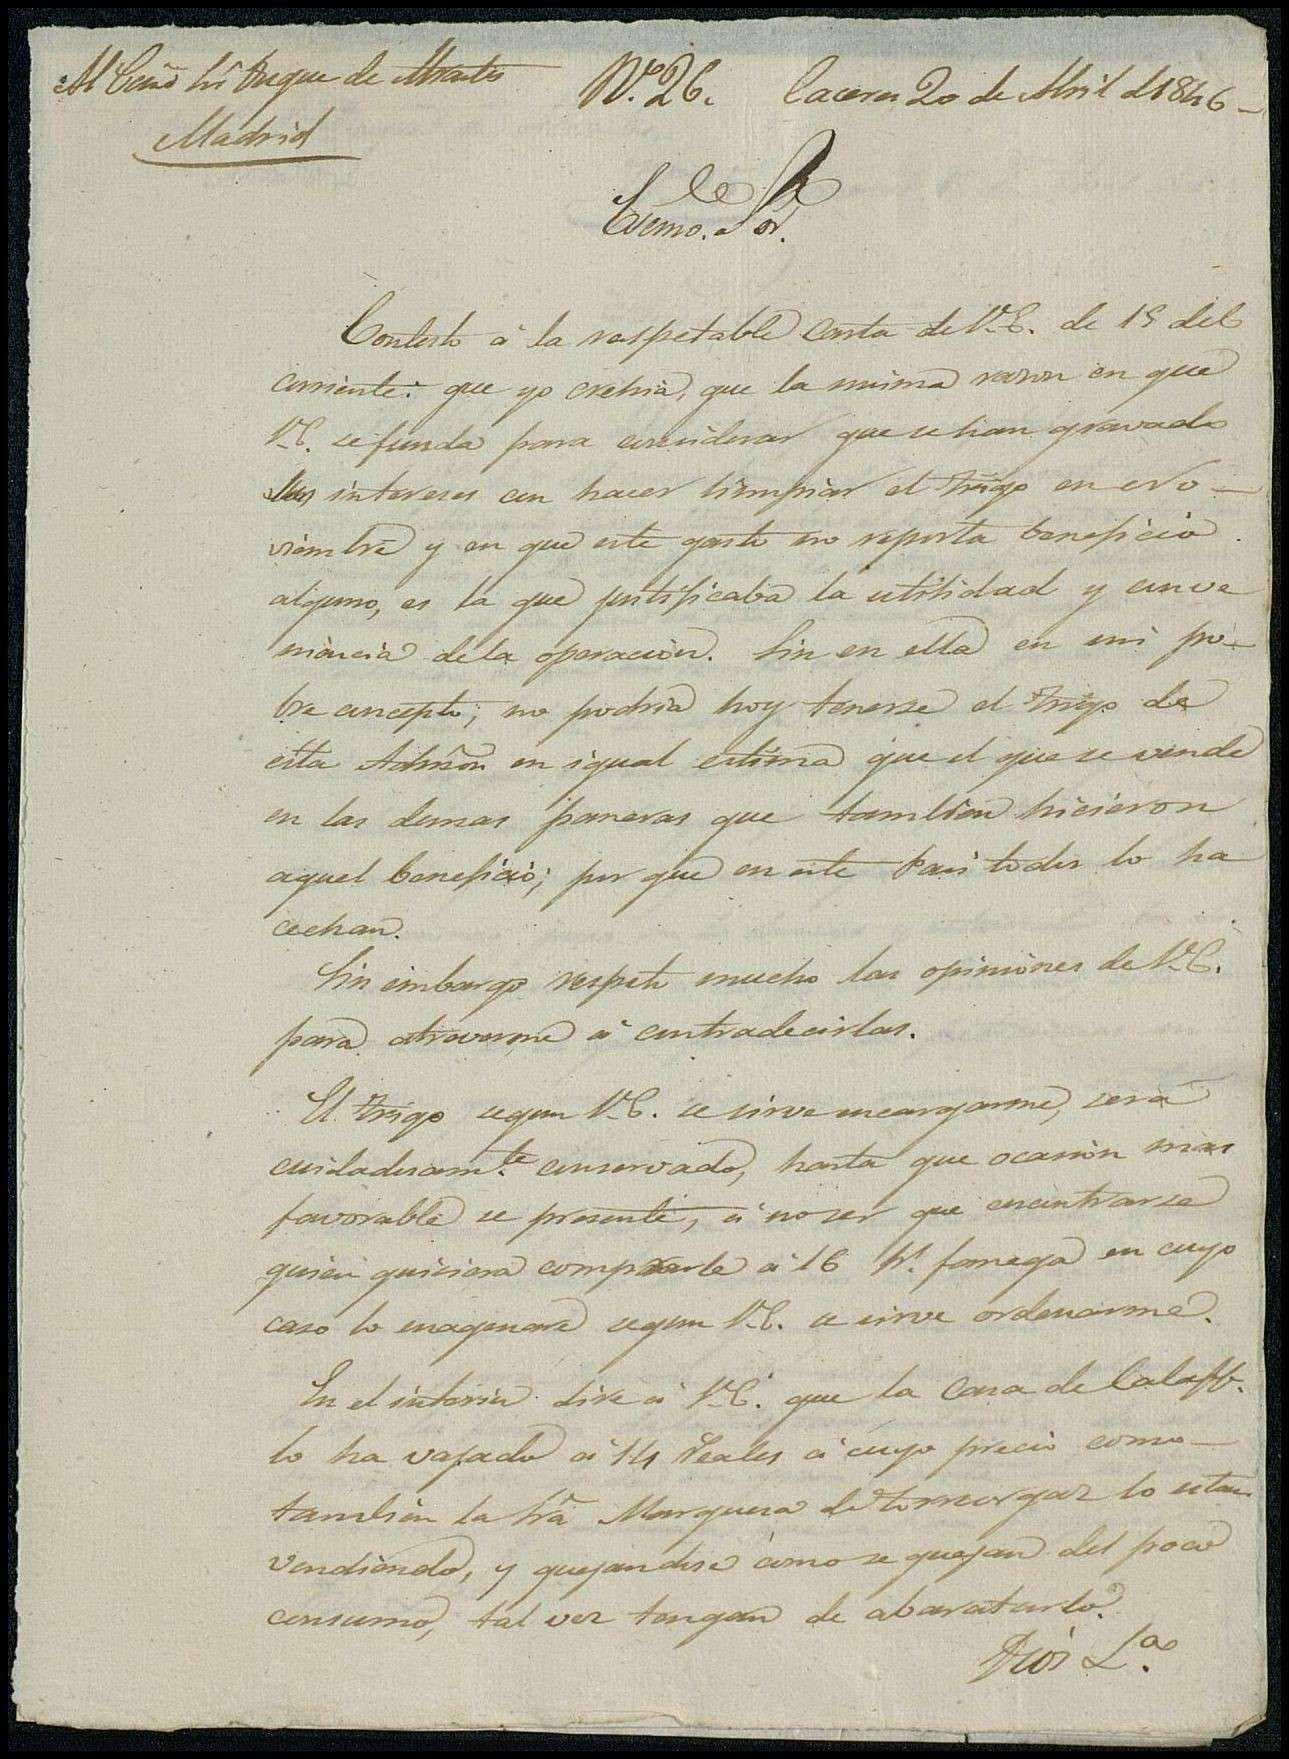 Al Exmõ Sr Duque de Abrantes
Madrid
Nº. 26. Caceres 20 de Abril d 1846
Exmo. Sor.
Contesto á la respetable carta de V.E. de 15 del
corriente: que yo crehia, que la misma razon en que
V.E. se funda para considerar que se han gravado
sus intereses en hacer limpiar el trigo en No-
viembre y en que este gasto no reporta beneficio
alguno, es la que justificaba la utilidad y conve
niencia de la operacion. Sin en ella en mi po-
bre concepto; no podria hoy tenerse el trigo de
esta Admõn en igual estima que el que se vende
en las demas paneras que tambien hicieron
aquel beneficio; por que en este Pais todos lo ha
cechan.
Sin embargo respeto mucho las opiniones de V.E.
para atreverme á contradecirlas.
El trigo segun V.E. se sirve encargarme, será
cuidadosamte. conservado, hasta que ocasion mas
favorable se presente, á no ser que encontrase
quien quisiera comprarle á 16 rs. fanega en cuyo
caso lo enagenare segun V.E. se sirve ordenarme.
En el interin dire á V.E. que la Casa de Calaff.
lo ha vajado á 14 reales á cuyo precio como
tambien la Srã Marquesa de Torreorgaz lo estan
vendiendo, y quejandose como se quejan del poco
consumo, tal vez tengan de abaratarlo.
Dios La.